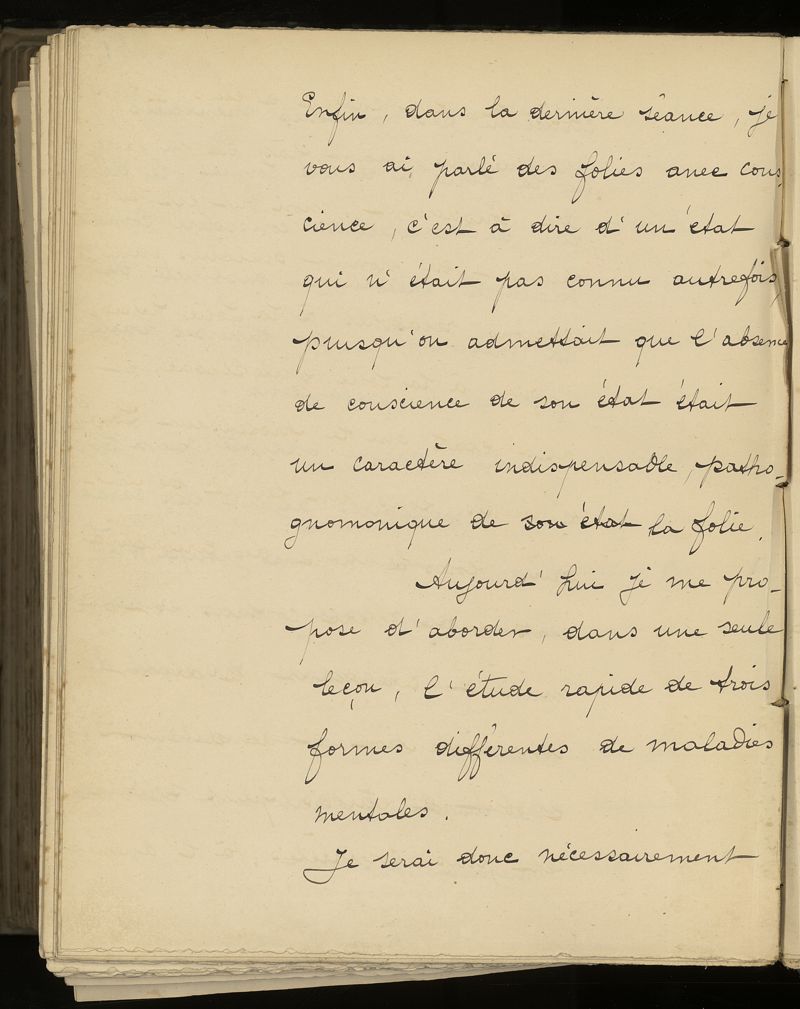 Enfin, dans la dernière séance, je
vous ai parlé des folies avec cons
cience, c'est à dire d'un état
qui n'était pas connu autrefois,
puisqu'on admettait que l'absence
de conscience de son état était
un caractère indispensable, patho-
gnomonique de son état la folie.
Aujourd'hui je me pro-
pose d'aborder, dans une seule
leçon, l'étude rapide de trois
formes différentes de maladies
mentales.
Je serai donc nécessairement